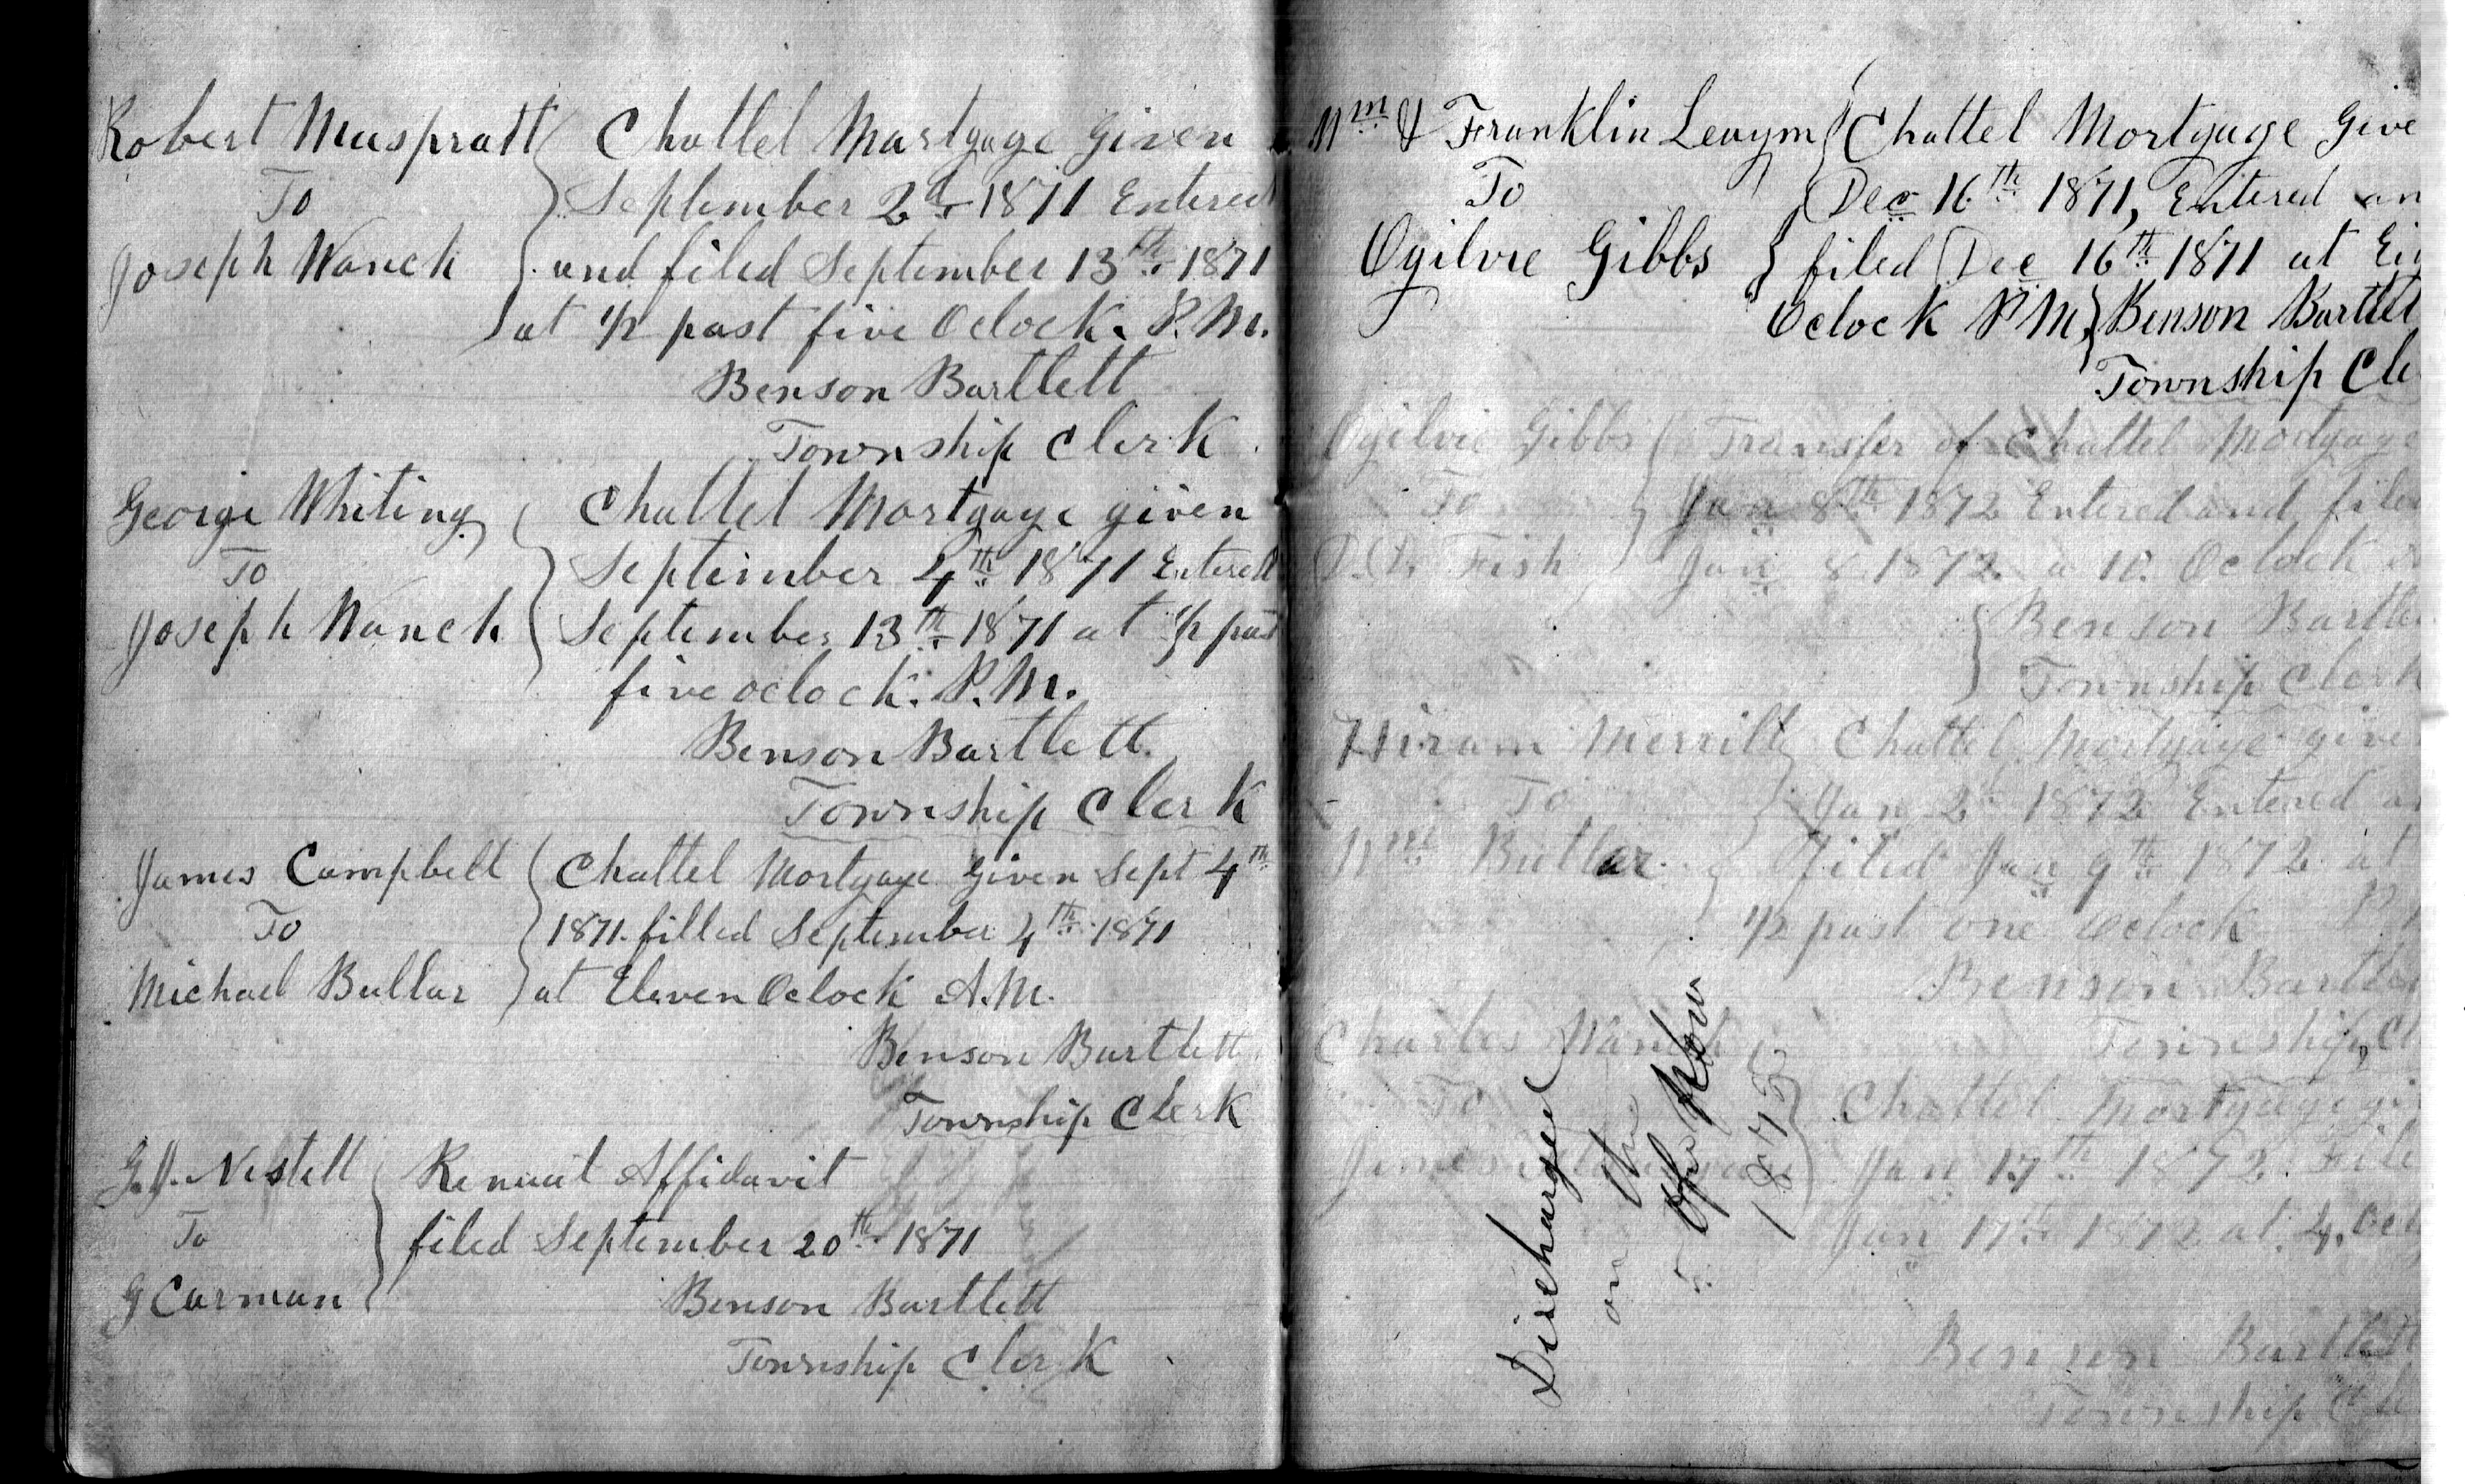 Robert Muspratt Chattel Mortgage Given
To September 2d 1871 Entered
Joseph Wanch and filed September 13th 1871
at 1/2 past five Oclock. P.M.
Benson Bartlett
Township Clerk
George Whiting Chattel Mortgage given
To September 4th 1871 Entered
Joseph Wanch September 13th 1871 at 1/2 past
five oclock. P.M.
Benson Bartlett.
Township Clerk
James Campbell Chattel Mortgage Given Sept 4th
To 1871. filled September 4th 1871
Michael Bullar at Eleven Oclock A.M.
Benson Bartlett
Township Clerk
G.J. Nestell Renuat Affidavit
To filed September 20th 1871
G Carman Benson Bartlett
Township Clerk
Wm & Franklin Leaym Chattel Mortgage Give
To Dec 16th 1871, Entered an
Ogilvie Gibbs filed Dec 16th 1871 at Eig
Oclock P M Benson Bartlet
Township Cle
Ogilvie Gibbs Transfer of Chattel Mortgage
To Jan 8th 1872 Entered and filed
Fish Jan 8 1872 a 10. Oclock
Benson Bartlet
Township Clerk
Hiram Merrill Chattel Mortgage give
To Jan 2d 1872 Entered an
Wm Butlar filed Jan 9th 1872 at
1/2 past one Oclock P
Benson Bartlet
Charles Wanch Township Cl
To Chattel Mortgage gi
James Jan 17th 1872 File
Jan 17th 1872 at 4. Ocl
Benson Bartlett
Township Cle
Discharged
on the
1873